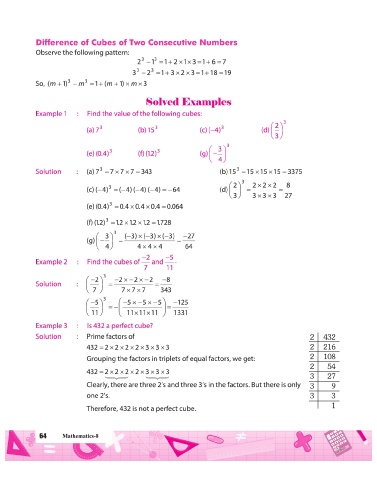 Difference of Cubes of Two Consecutive Numbers
Observe the following pattern:
2³ − 1³ = 1 + 2 × 1 × 3 = 1 + 6 = 7
3³ − 2³ = 1 + 3 × 2 × 3 = 1 + 18 = 19
So, (m + 1)³ − m³ = 1 + (m + 1) × m × 3
Solved Examples
Example 1 : Find the value of the following cubes:
(a) 7³ (b) 15³ (c) (−4)³ (d) (2/3)³
(e) (0.4)³ (f) (1.2)³ (g) (−3/4)³
Solution : (a) 7³ = 7 × 7 × 7 = 343 (b) 15³ = 15 × 15 × 15 = 3375
(c) (−4)³ = (−4) (−4) (−4) = −64 (d) (2/3)³ = (2 × 2 × 2)/(3 × 3 × 3) = 8/27
(e) (0.4)³ = 0.4 × 0.4 × 0.4 = 0.064
(f) (1.2)³ = 1.2 × 1.2 × 1.2 = 1.728
(g) (−3/4)³ = ((−3) × (−3) × (−3))/(4 × 4 × 4) = −27/64
Example 2 : Find the cubes of −2/7 and −5/11.
Solution : (−2/7)³ = (−2 × −2 × −2)/(7 × 7 × 7) = −8/343
(−5/11)³ = −(−5 × −5 × −5/11 × 11 × 11) = −125/1331
Example 3 : Is 432 a perfect cube?
Solution : Prime factors of
432 = 2 × 2 × 2 × 2 × 3 × 3 × 3
Grouping the factors in triplets of equal factors, we get:
432 = 2 × 2 × 2 × 2 × 3 × 3 × 3
Clearly, there are three 2's and three 3's in the factors. But there is only
one 2's.
Therefore, 432 is not a perfect cube.
2 432
2 216
2 108
2 54
3 27
3 9
3 3
1
64 Mathematics-8